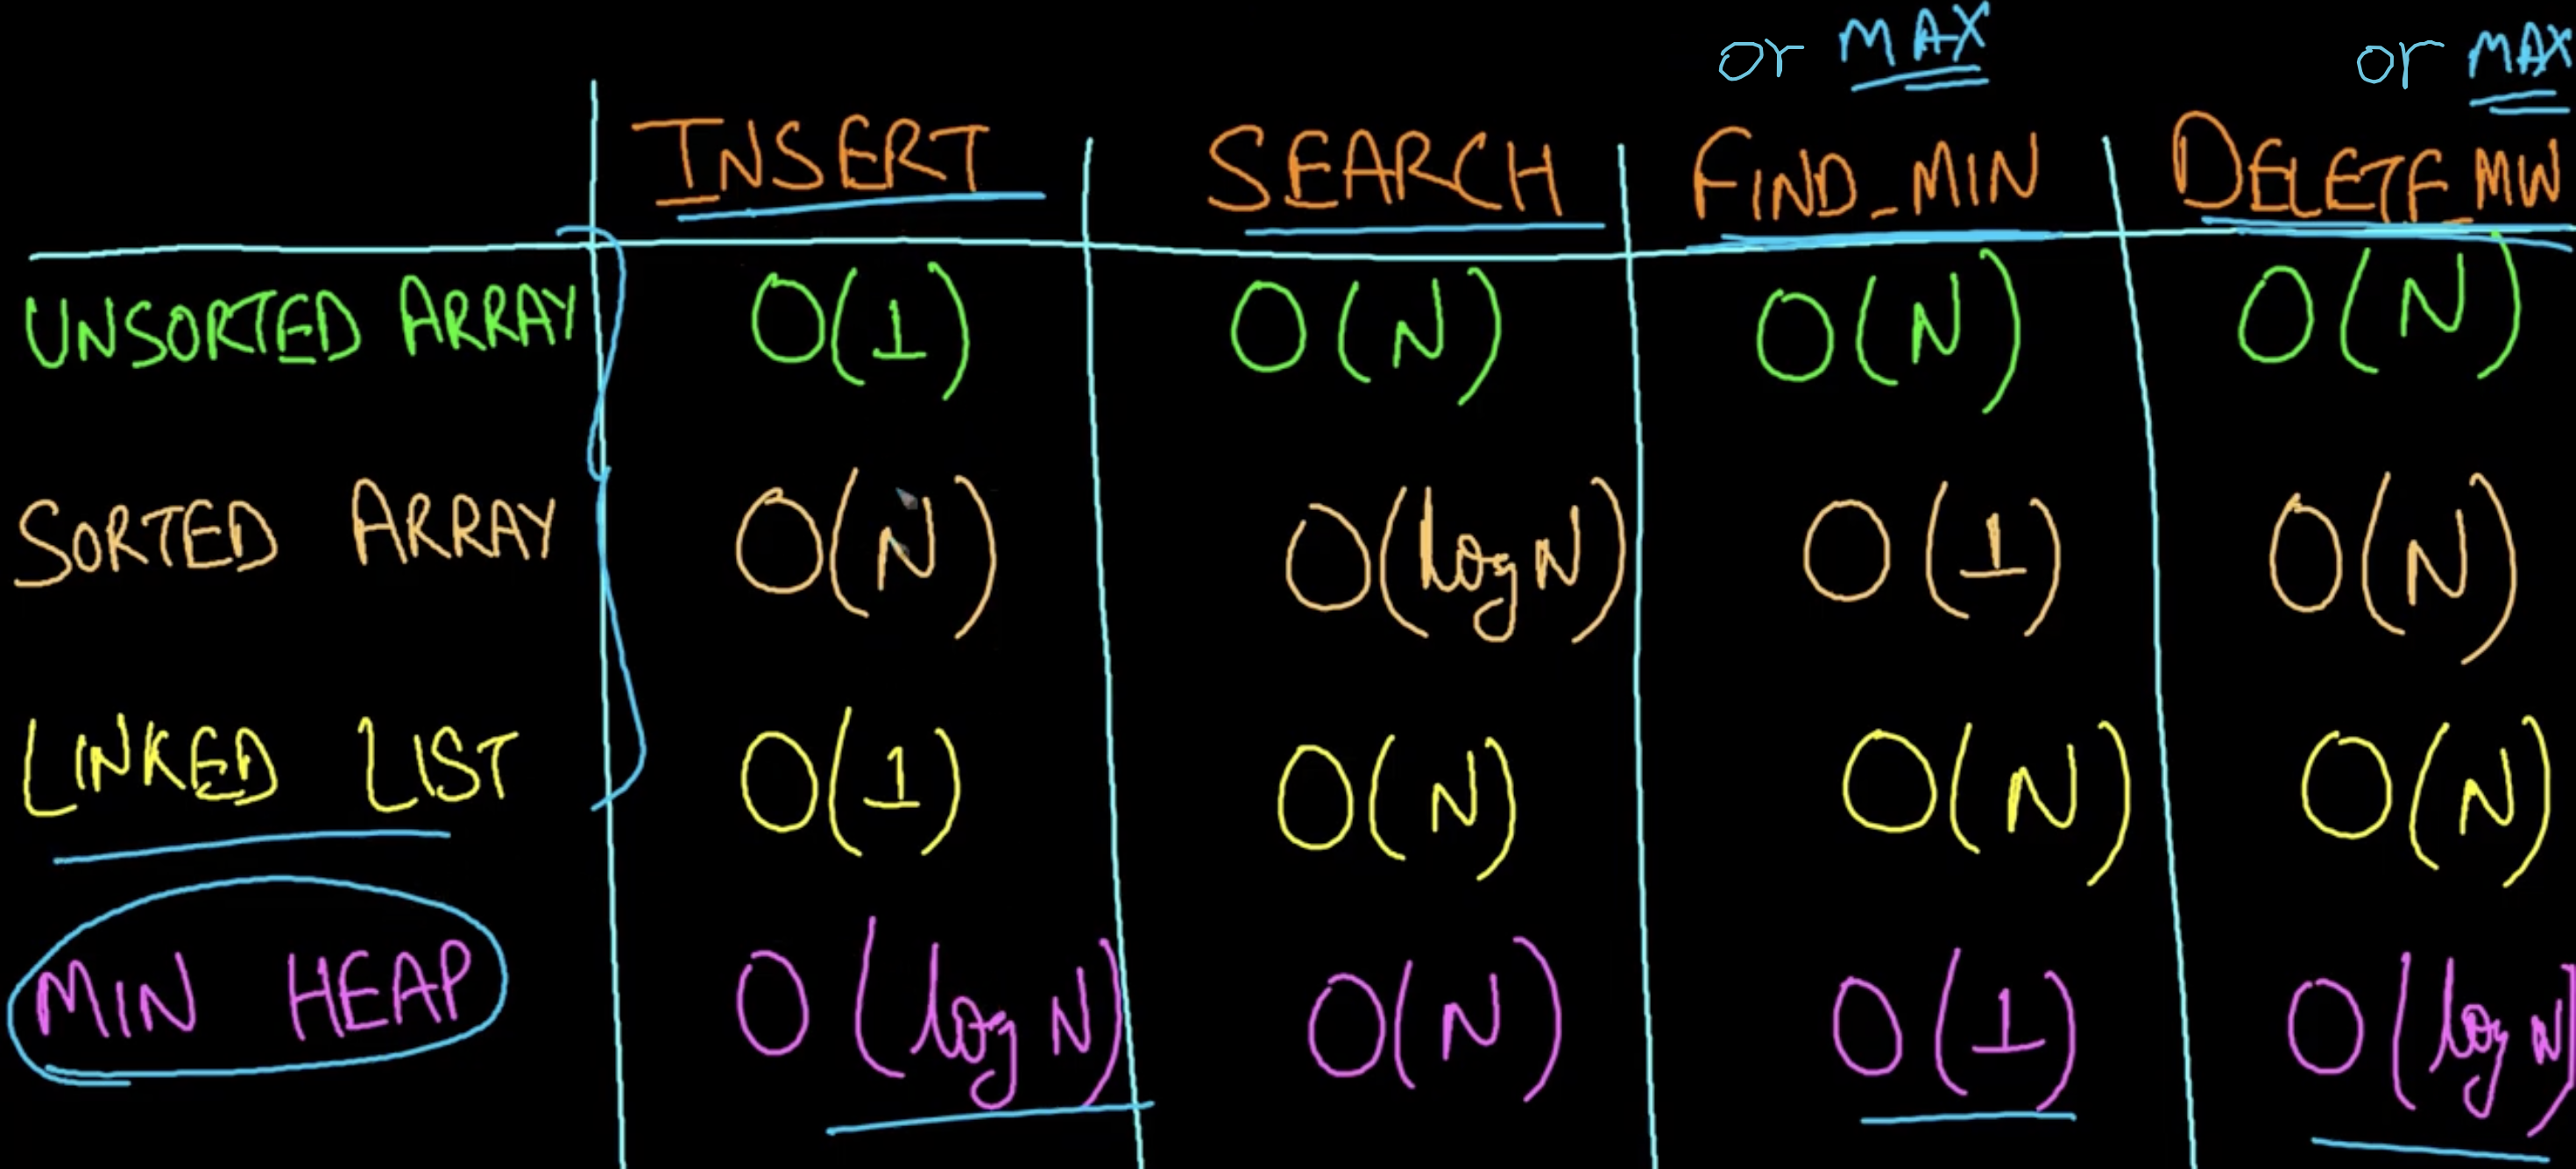 or MAX or MAX
INSERT SEARCH FIND_MIN DELETE_MIN
UNSORTED ARRAY O(1) O(N) O(N) O(N)
SORTED ARRAY O(N) O(log N) O(1) O(N)
LINKED LIST O(1) O(N) O(N) O(N)
MIN HEAP O(log N) O(N) O(1) O(log N)